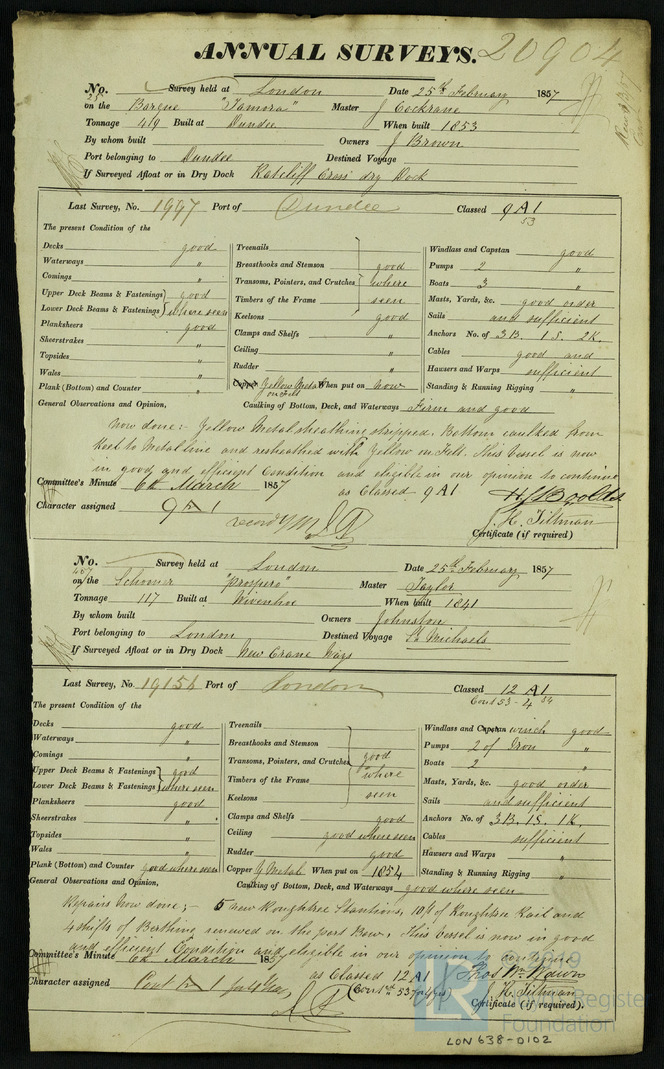 ANNUAL SURVEYS. 20904
No. 25 Survey held at London Date 25th February 1857
on the Barque "Tamora" Master J Cockrane
Tonnage 419 Built at Dundee When built 1853
By whom built Owners J Brown
Port belonging to Dundee Destined Voyage
If Surveyed Afloat or in Dry Dock Ratcliff Cross dry Dock
Last Survey, No. 1997 Port of Dundee Classed 9 A1
53
The present Condition of the
Decks good
Waterways "
Comings "
Upper Deck Beams & Fastenings good
Lower Deck Beams & Fastenings where seen
Planksheers good
Sheerstrakes "
Topsides "
Wales "
Plank (Bottom) and Counter "
Treenails
Breasthooks and Stemson good
Transoms, Pointers, and Crutches where
Timbers of the Frame seen
Keelsons good
Clamps and Shelfs "
Ceiling "
Rudder "
Copper Yellow Metal on Felt When put on now
Windlass and Capstan good
Pumps 2 "
Boats 3 "
Masts, Yards, &c. good order
Sails and sufficient
Anchors No. of 3B. 1S. 2K.
Cables good and
Hawsers and Warps sufficient
Standing & Running Rigging "
General Observations and Opinion, Caulking of Bottom, Deck, and Waterways Firm and good
Now done:- Yellow Metal sheathing stripped. Bottom caulked from
Keel to Metal line and resheathed with Yellow on Felt. This Vessel is now
in good and efficient Condition and eligible in our opinion to continue
Committee's Minute 6th March 1857 as Classed 9 A1
Character assigned 9 A 1
record YM
J. H. Tillman
Certificate (if required)
No. 467 Survey held at London Date 25th February 1857
on the Schooner "Prospero" Master Taylor
Tonnage 117 Built at Wivenhoe When built 1841
By whom built Owners Johnston
Port belonging to London Destined Voyage St Michaels
If Surveyed Afloat or in Dry Dock New Crane Ways
Last Survey, No. 19154 Port of London Classed 12 A1
Cont 53-4
The present Condition of the
Decks good
Waterways "
Comings "
Upper Deck Beams & Fastenings good
Lower Deck Beams & Fastenings where seen
Planksheers good
Sheerstrakes "
Topsides "
Wales "
Plank (Bottom) and Counter good where seen
Treenails
Breasthooks and Stemson
Transoms, Pointers, and Crutches good
Timbers of the Frame where
Keelsons seen
Clamps and Shelfs good
Ceiling good where seen
Rudder good
Copper Y Metal When put on 1854
Windlass and Capstan winch good
Pumps 2 of Iron "
Boats 2 "
Masts, Yards, &c. good order
Sails and sufficient
Anchors No. of 3B. 1S. 1K.
Cables sufficient
Hawsers and Warps "
Standing & Running Rigging "
General Observations and Opinion, Caulking of Bottom, Deck, and Waterways good where seen
Repairs Now done;- 5 new Roughtree Stantions, 10ft of Roughtree Rail and
4 shifts of Berthing renewed on the port Bow. This Vessel is now in good
and efficient Condition and eligible in our opinion to continue
Committee's Minute 6th March 1857 as Classed 12 A1
Character assigned
J. H. Tillman
Certificate (if required).
Foundation
LON 638-0102